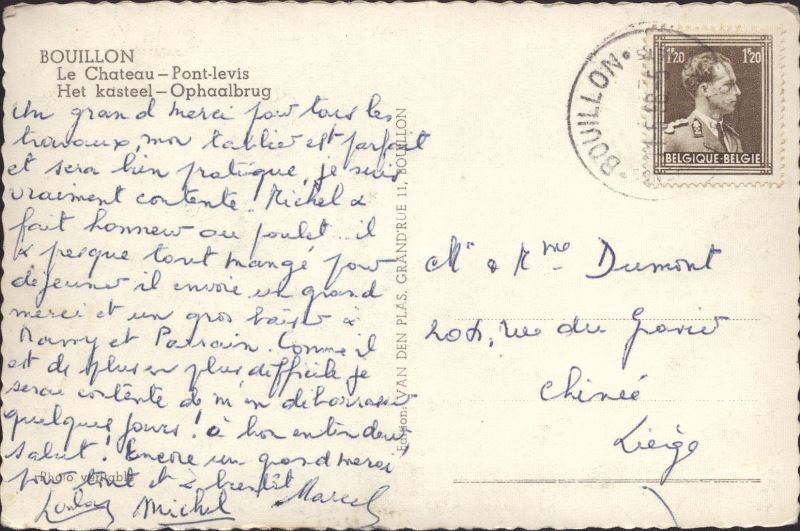 BOUILLON
Le Chateau – Pont-levis
Het kasteel – Ophaalbrug
Un grand merci pour tous les
travaux, mon tablier est parfait
et sera bien pratique, je suis
vraiment contente. Michel a
fait honneur au poulet... il
a presque tout mangé pour
déjeuner il envoie un grand
merci et un gros baiser à
Mamy et Parrain. Comme il
est de plus en plus difficile je
serai contente de m'en débarrasser
quelques jours! à bon entendeur
salut! Encore un grand merci
pour tout et à bientôt
Michel Marcel
Photo véritable
Edition: VAN DEN PLAS, GRAND'RUE 11, BOUILLON
BOUILLON
1F20 1F20
BELGIQUE-BELGIE
Mr & Mme Dumont
rue du Gravier
Chênée
Liège